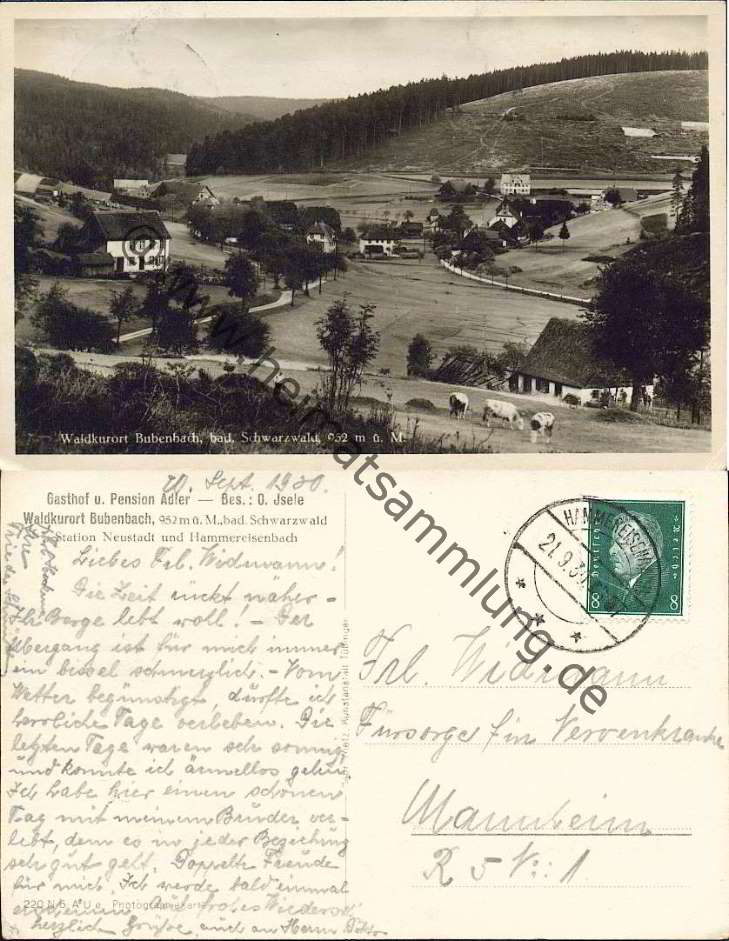 Waldkurort Bubenbach, bad. Schwarzwald, 952 m ü. M.
© www.heimatsammlung.de
20. Sept. 1930.
Gasthof u. Pension Adler — Bes.: O. Jsele
Waldkurort Bubenbach, 952 m ü. M., bad. Schwarzwald
Station Neustadt und Hammereisenbach
Liebes Frl. Widmann!
Die Zeit rückt näher -
Ihr Berge lebt woll! - Der
Übergang ist für mich immer
ein bissel schmerzlich. - Vom
Wetter begünstigt, durfte ich
herrliche Tage verleben. Die
letzten Tage waren sehr sonnig
und konnte ich ärmellos gehen
Ich habe hier einen schönen
Tag mit meinem Bruder ver-
lebt, dem es in jeder Beziehung
sehr gut geht. Doppelte Freude
für mich. Ich werde bald einmal
Auf frohes Wiedersehn
herzlich Grüße auch an Herrn
Ihre
220 N 5 A U e Photographiekarte
HAMMEREISENBACH
21.9.30
Deutsches Reich
8 8
Frl. Widmann
Fürsorge für Nervenkranke
Mannheim
R 5 No: 1